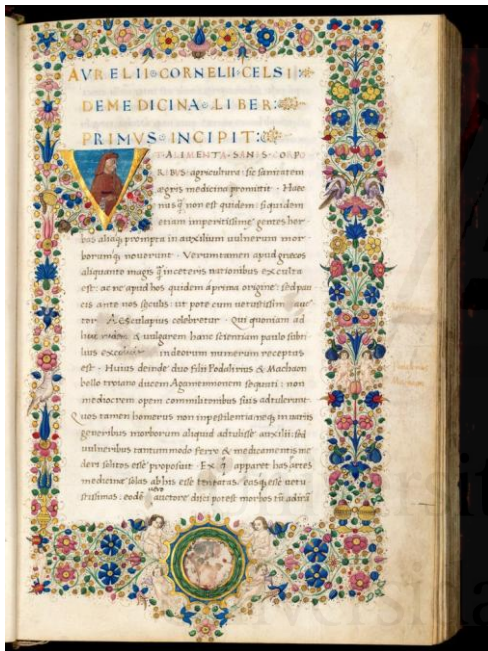 AVRELII CORNELII CELSI
DE MEDICINA LIBER
PRIMVS INCIPIT:
VT ALIMENTA SANIS CORPO
RIBVS agricultura: sic sanitatem
ægris medicina promittit. Haec
nusq̃ non est quidem: siquidem
etiam imperitissimę gentes her
bas aliaq; prompta in auxilium uulnerum mor
borumq; nouerunt. Verumtamen apud gręcos
aliquanto magis q̃ in ceteris nationibus exculta
est: ac ne apud hos quidem a prima origine: sed pau
cis ante nos sęculis: ut pote cum uetustissimus auc
tor Aesculapius celebretur. Qui quoniam ad
huc rudem & uulgarem hanc scientiam paulo subti
lius excoluit in deorum numerum receptus
est. Huius deinde duo filii Podalirius & Machaon
bello troiano ducem Agamemnonem sequuti: non
mediocrem opem commilitonibus suis adtulerunt.
Quos tamen homerus non in pestilentia neq; in uariis
generibus morborum aliquid adtulisse auxilii: sed
uulneribus tantummodo ferro & medicamentis me
deri solitos esse proposuit. Ex q̃ apparet has artes
medicinę solas ab his esse tentatas: easq; esse uetu
stissimas: eodē uero auctore disci potest morbos tū ad irā